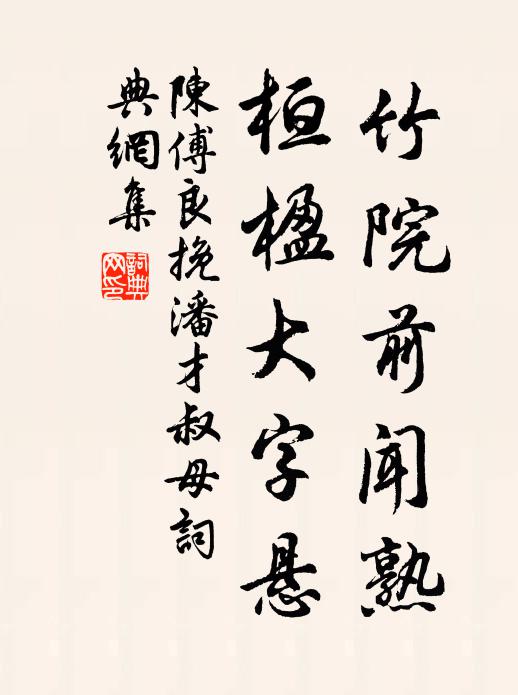 竹院前闻熟
桓楹大字悬
陳傅良挽潘才叔母詞
典網集
詞典網印